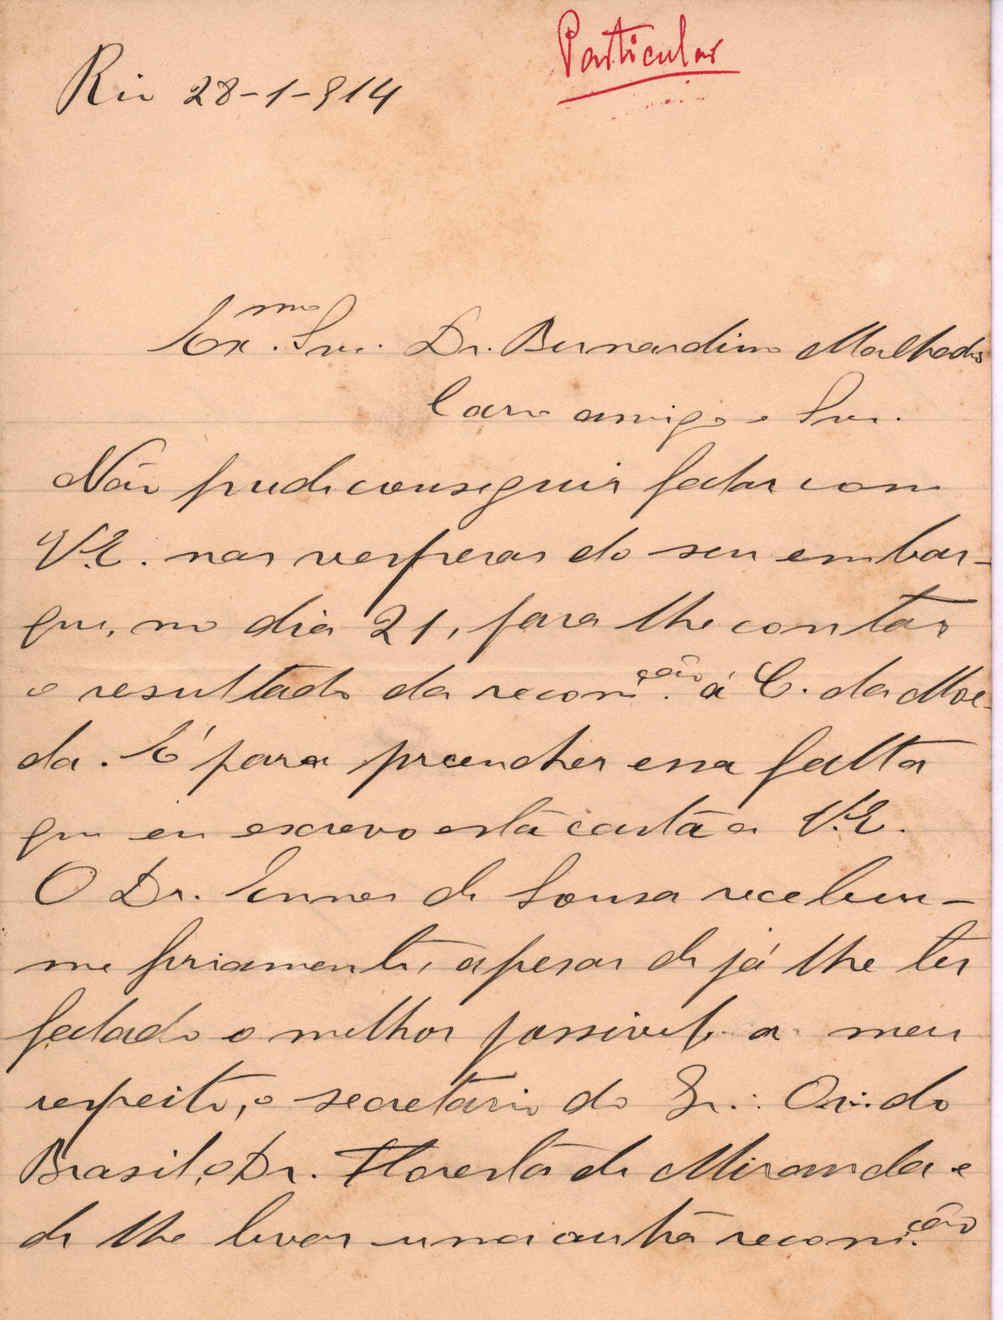 Particular
Rio 28-1-914
Exmo. Snr. Dr. Bernardino Machado
Caro amigo e Snr.
Não pude conseguir fallar com
V.E. nas vesperas do seu embar-
que, no dia 21, para lhe contar
o resultado da recomção. á C. da Moe-
da. É para preencher essa falta
que eu escrevo esta carta a V.E.
O Dr. Ennes de Sousa recebeu-
me friamente, apesar de já lhe ter
fallado o melhor possivel a meu
respeito, o secretario do Gr.: Or.: do
Brasil, o Dr. Floresta de Miranda e
de lhe levar uma outra recomção.